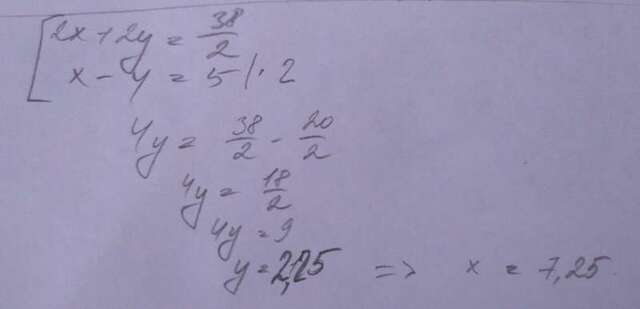 2x+2y = 38/2
x-y = 5 /· 2
4y = 38/2 - 20/2
4y = 18/2
4y = 9
y = 2,25 => x = 7,25